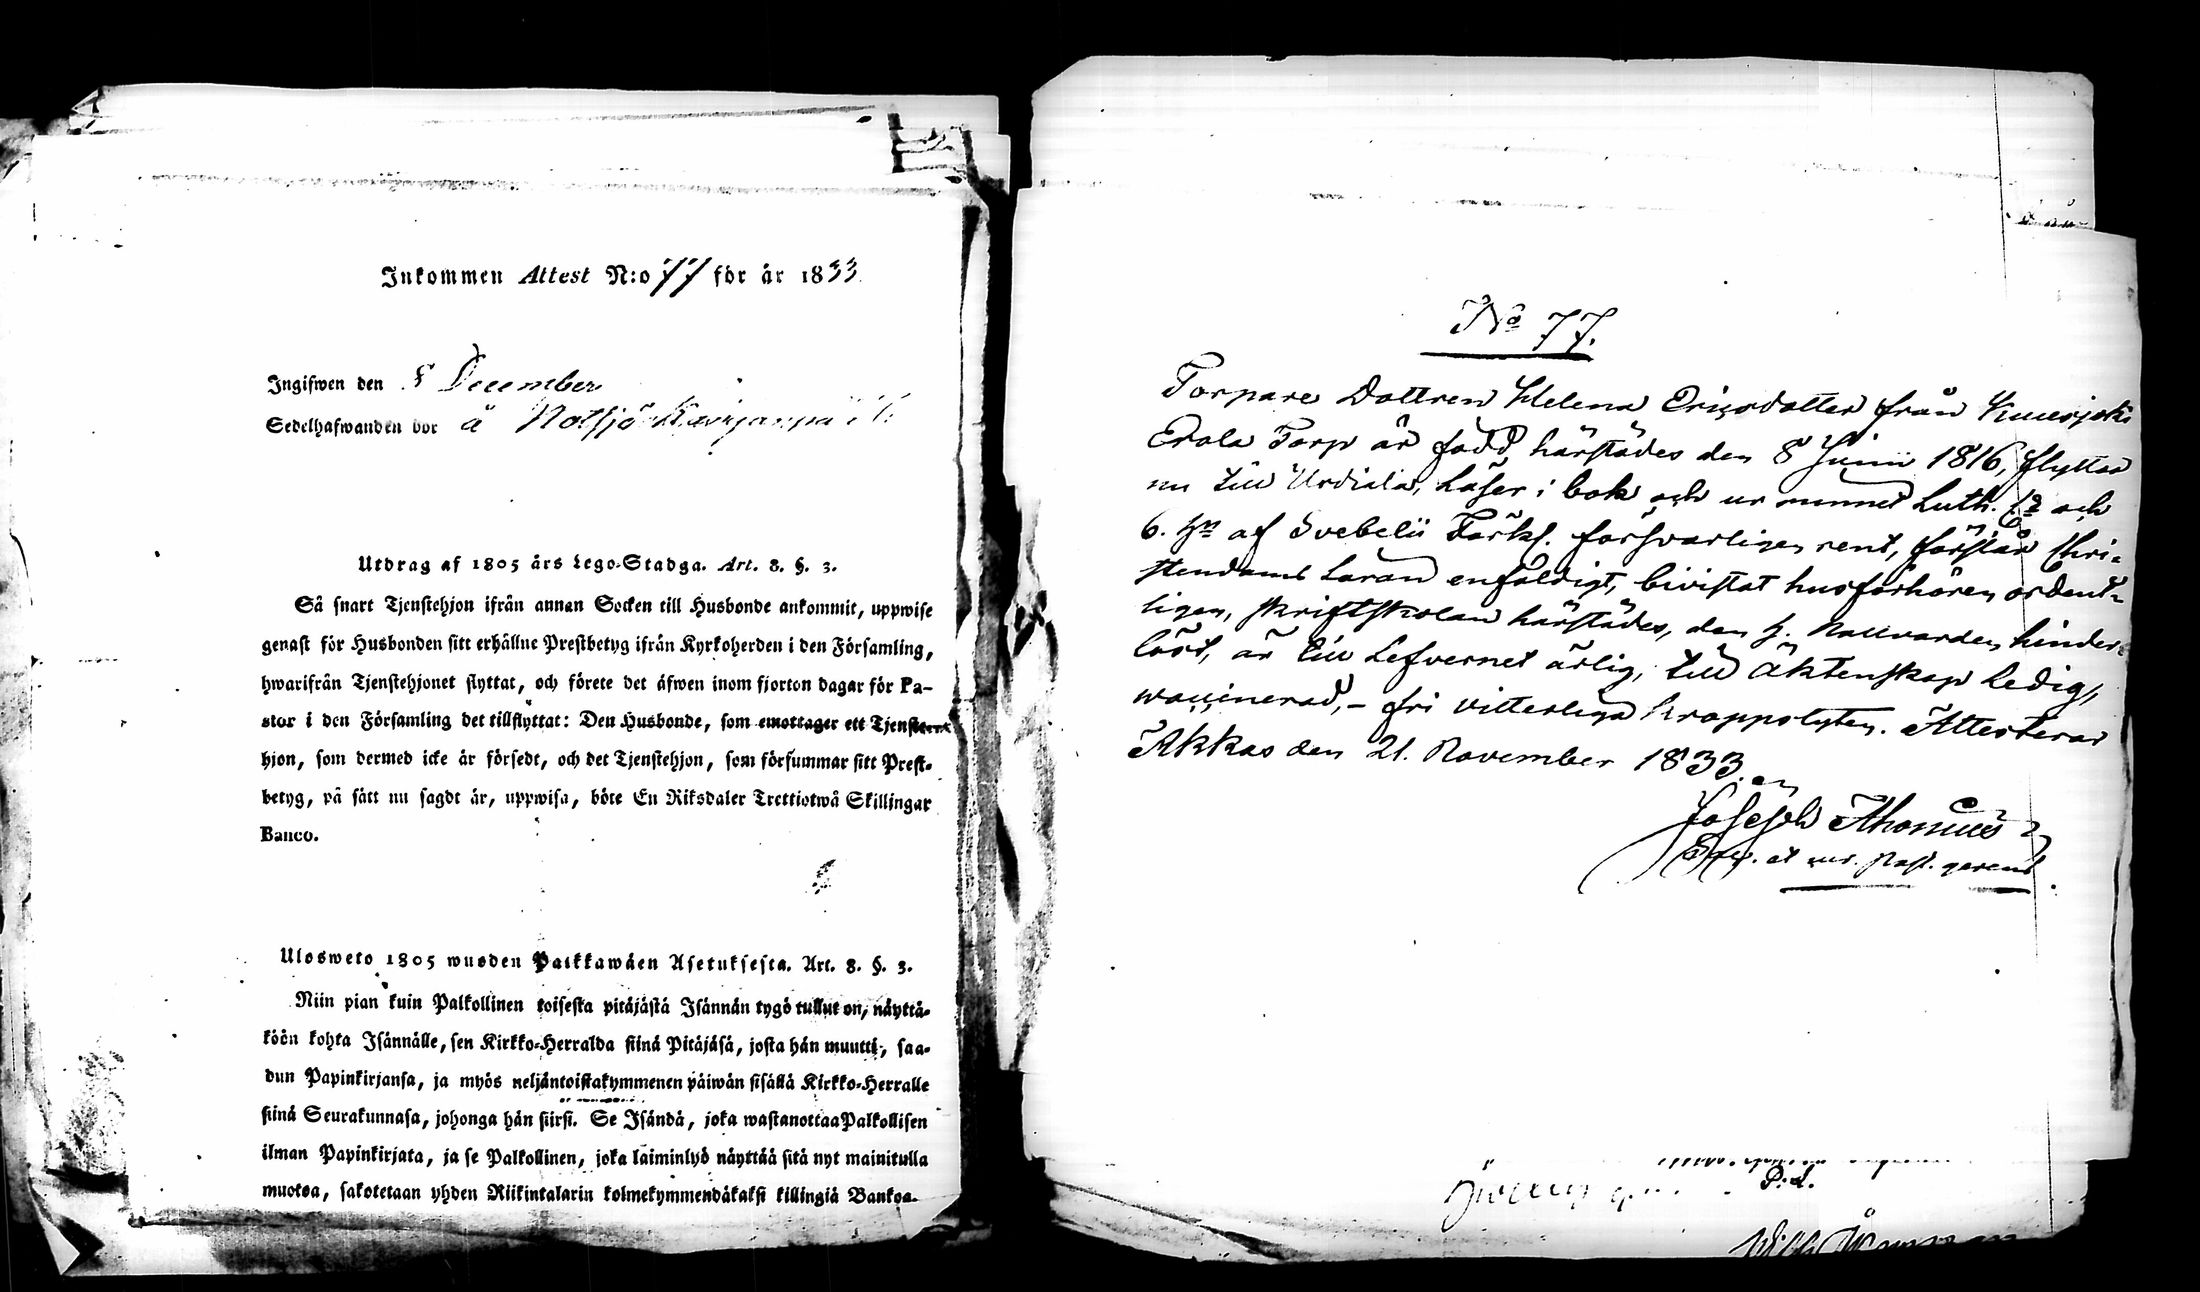 Inkommen Attest N:o 77 för år 1833.
Ingifwen den 8 December
Sedelhafwanden bor å Notsjö
Utdrag af 1805 års Lego-Stadga. Art. 8. §. 3.
Så snart Tjenstehjon ifrån annan Socken till Husbonde ankommit, uppwise
genast för Husbonden sitt erhållne Prestbetyg ifrån Kyrkoherden i den Församling,
hwarifrån Tjenstehjonet flyttat, och förete det äfwen inom fjorton dagar för Pa-
stor i den Församling det tillflyttat: Den Husbonde, som emottager ett Tjenste-
hjon, som dermed icke är försedt, och det Tjenstehjon, som försummar sitt Prest-
betyg, på sätt nu sagdt är, uppwisa, böte En Riksdaler Trettiotwå Skillingar
Banco.
Ulosweto 1805 wuoden Palkkawäen Asetuksesta. Art. 8. §. 3.
Niin pian kuin Palkollinen toisesta pitäjästä Isännän tygö tullut on, näyttä-
köön kohta Isännälle, sen Kirkko-Herralda siinä Pitäjäsä, josta hän muutti, saa-
dun Papinkirjansa, ja myös neljäntoistakymmenen päiwän sisällä Kirkko-Herralle
siinä Seurakunnasa, johonga hän siirsi. Se Isändä, joka wastanottaa Palkollisen
ilman Papinkirjata, ja se Palkollinen, joka laiminlyö näyttää sitä nyt mainitulla
muotoa, sakotetaan yhden Riikintalarin kolmekymmendäkaksi killingiä Bankoa.
No 77.
Torpare Dottren Helena Ericsdotter från Kuurjoki
Erola Torp är född härstädes den 8 Junii 1816, flyttar
nu till Urdiala, Läser i bok och ur minnet Luth. Cs och
6. Hn af Svebelii Förkl. försvarligen rent, förstår Chri-
stendoms Läran enfäldigt, bivistat husförhören ordent-
ligen, skriftskolan härstädes, den h. Nattvarden hinder-
löst, är till Lefvernet ärlig, till Äktenskap Ledig,
waccinerad, - fri vitterliga kroppslyten. Attesterar
Akkas den 21. November 1833.
Joseph
P. L.